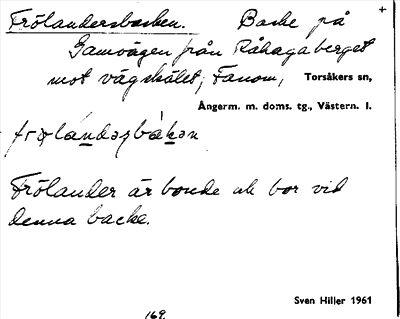 Frölandersbacken. Backe på +
Gamvägen från Råhagaberget
mot vägskälet, Fanom, Torsåkers sn,
Ångerm. m. doms. tg., Västern. l.
Frölander är bonde och bor vid
denna backe.
Sven Hiller 1961
169